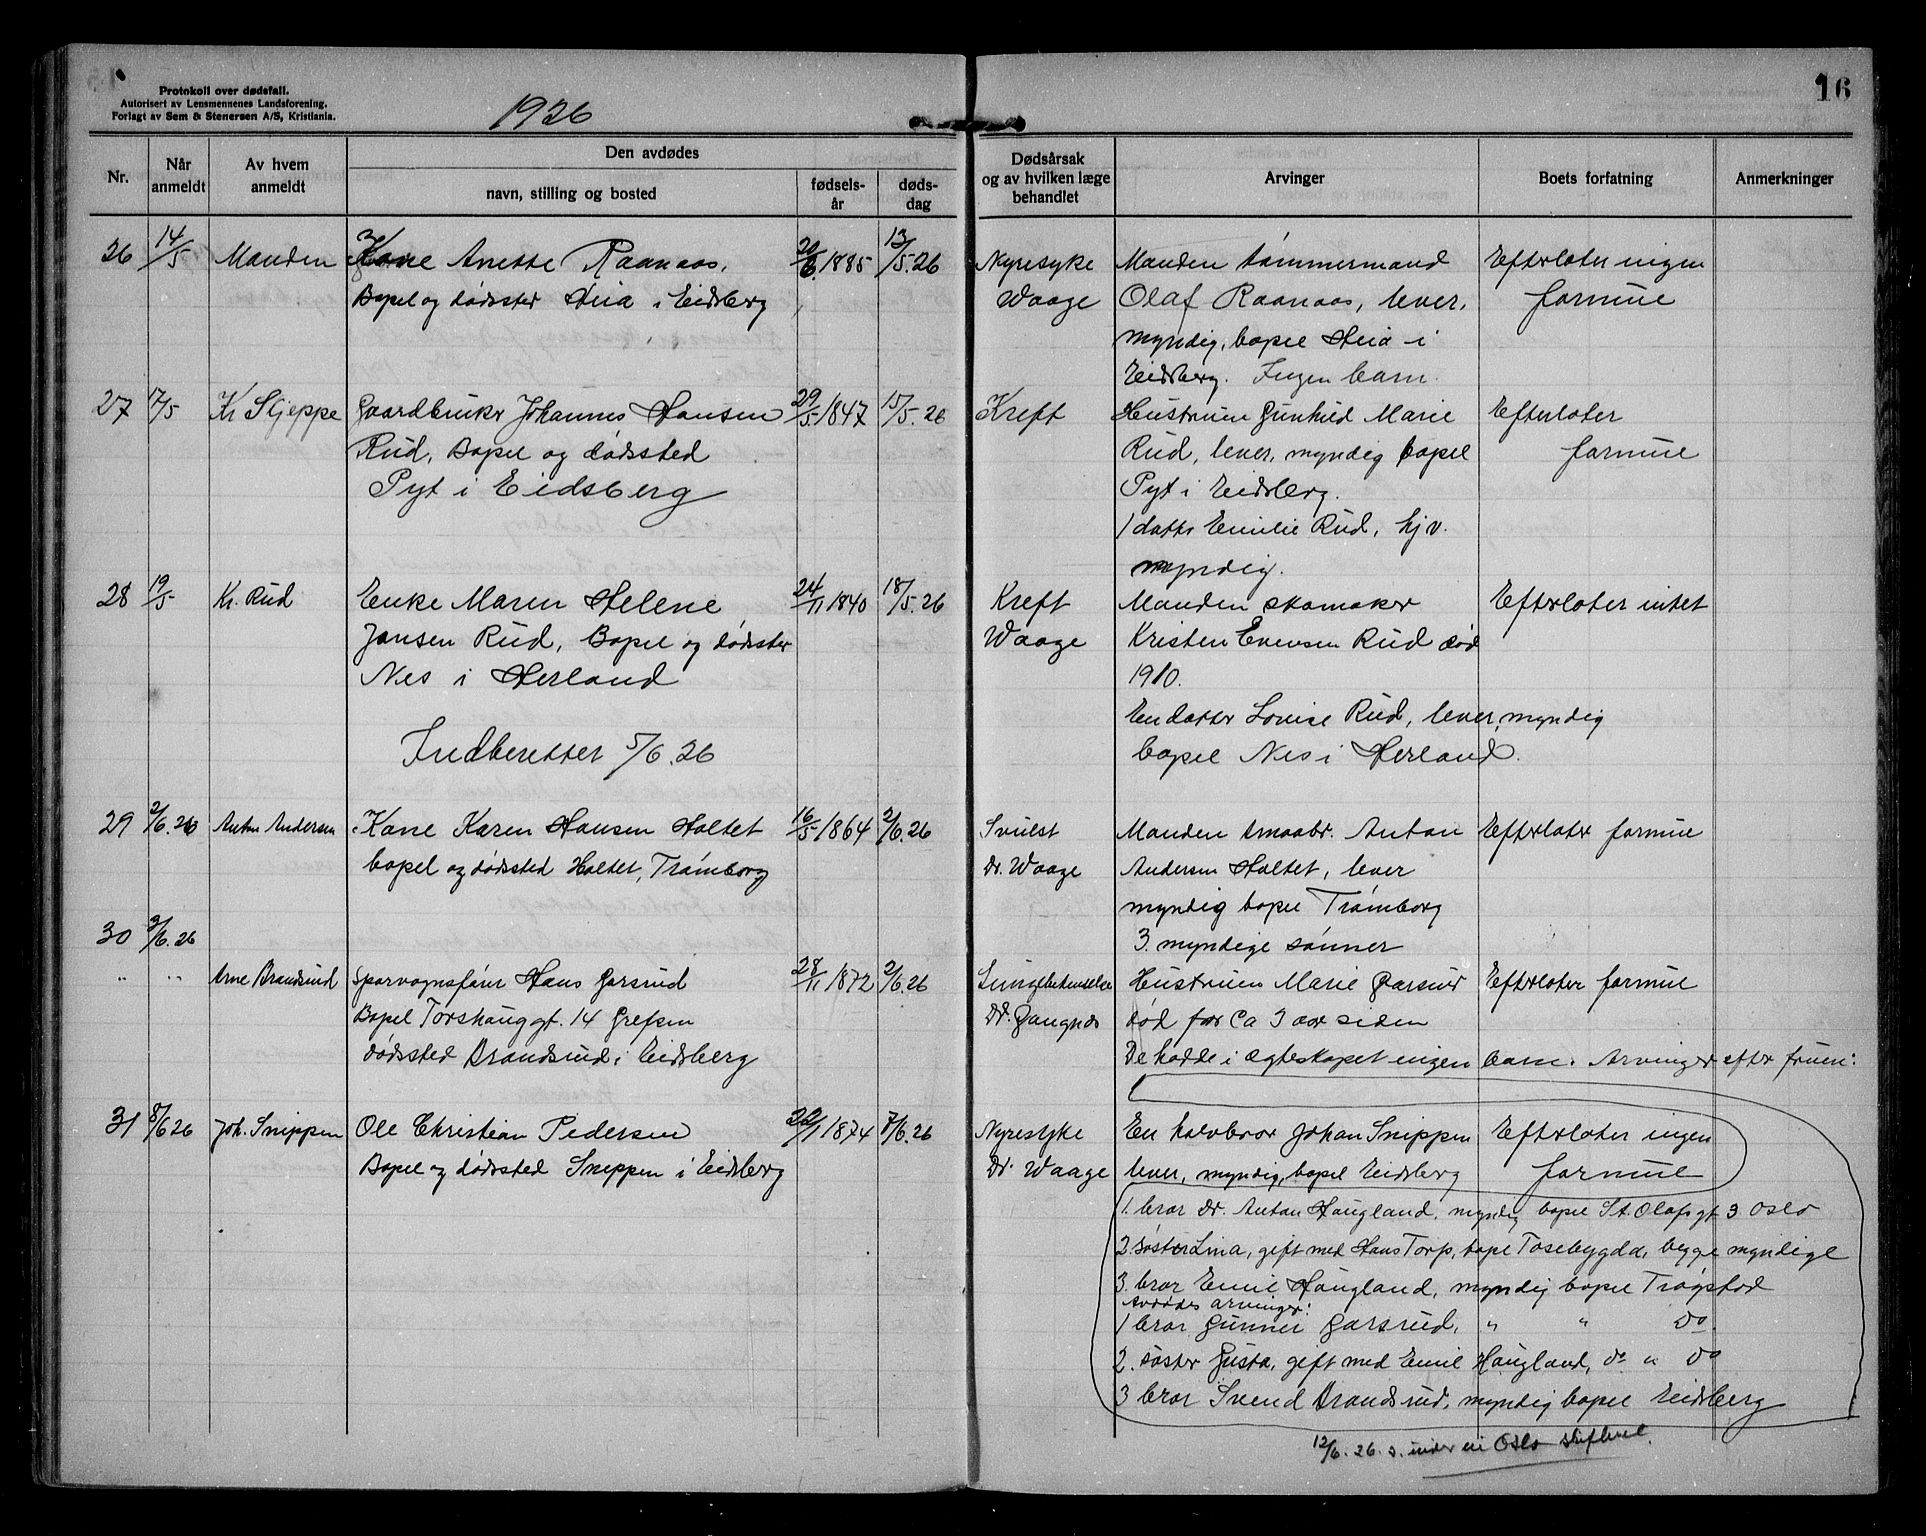 Protokoll over dødsfall.
Autorisert av Lensmennenes Landsforening.
Forlagt av Sem & Stenersen A/S, Kristiania.
1926
16
Nr.
Når anmeldt
Av hvem anmeldt
Den avdødes
navn, stilling og bosted
fødsels-år
døds-dag
Dødsårsak og av hvilken læge behandlet
Arvinger
Boets forfatning
Anmerkninger
26 14/5 Manden Kone Anette Raanaas, 20/6 1885 13/5.26 Nyresyke Manden tømmermand Efterlater ingen
Bopel og dødssted Heia i Eidsberg Waage Olaf Raanaas, lever, formue
myndig, bopel Heia i
Eidsberg. Ingen barn.
27 17/5 Kr Skjeppe Gaardbruker Johannes Hansen 29/5 1847 15/5.26 Kreft Hustruen Gunhild Marie Efterlater
Rud, Bopel og dødssted Rud, lever, myndig bopel formue
Pyt i Eidsberg Pyt i Eidsberg.
1 datter Emilie Rud, hjv.
myndig.
28 19/5 Kr. Rud Enke Maren Helene 24/11 1840 18/5.26 Kreft Manden skomaker Efterlater intet
Jansen Rud, Bopel og dødssted Waage Kristen Evensen Rud død
Nes i Herland 1910.
En datter Lovise Rud, lever, myndig
Indberettet 5/6.26 bopel Nes i Herland.
29 2/6.26 Anton Andersen Kone Karen Hansen Holtet 16/5 1864 2/6.26 Svulst Manden smaabr. Anton Efterlater formue
bopel og dødssted Holtet, Trømborg Dr. Waage Andersen Holtet, lever
myndig bopel Trømborg
30 3/6.26 3 myndige sønner
" " Arne Brandsrud Sporvognsfører Hans Garsrud 28/11 1872 2/6.26 Lungebetendelse Hustruen Marie Garsrud Efterlater formue
Bopel Torshauggt. 14 Grefsen Dr. død for Ca 3 aar siden
dødssted Brandsrud i Eidsberg De hadde i egteskapet ingen barn. Arvinger efter fruen:
31 8/6 26 Joh. Snippen Ole Christian Pedersen 22/1 1874 7/6.26 Nyresyke En halvbror Johan Snippen Efterlater ingen
Bopel og dødssted Snippen i Eidsberg Dr. Waage lever, myndig, bopel Eidsberg formue
1. bror Dr. Anton Haugland, myndig bopel St. Olafsgt 3 Oslo
2. søster Lina, gift med Hans Torp, bopel Tosebygda, begge myndige
3. bror Emil Haugland, myndig bopel Trøgstad
Avdødes arvinger:
1 bror Gunner Garsrud, " " do.
2. søster Gusta, gift med Emil Haugland, do " do
3 bror Svend Brandsrud, myndig bopel Eidsberg
12/6.26 s. Oslo skifteret.